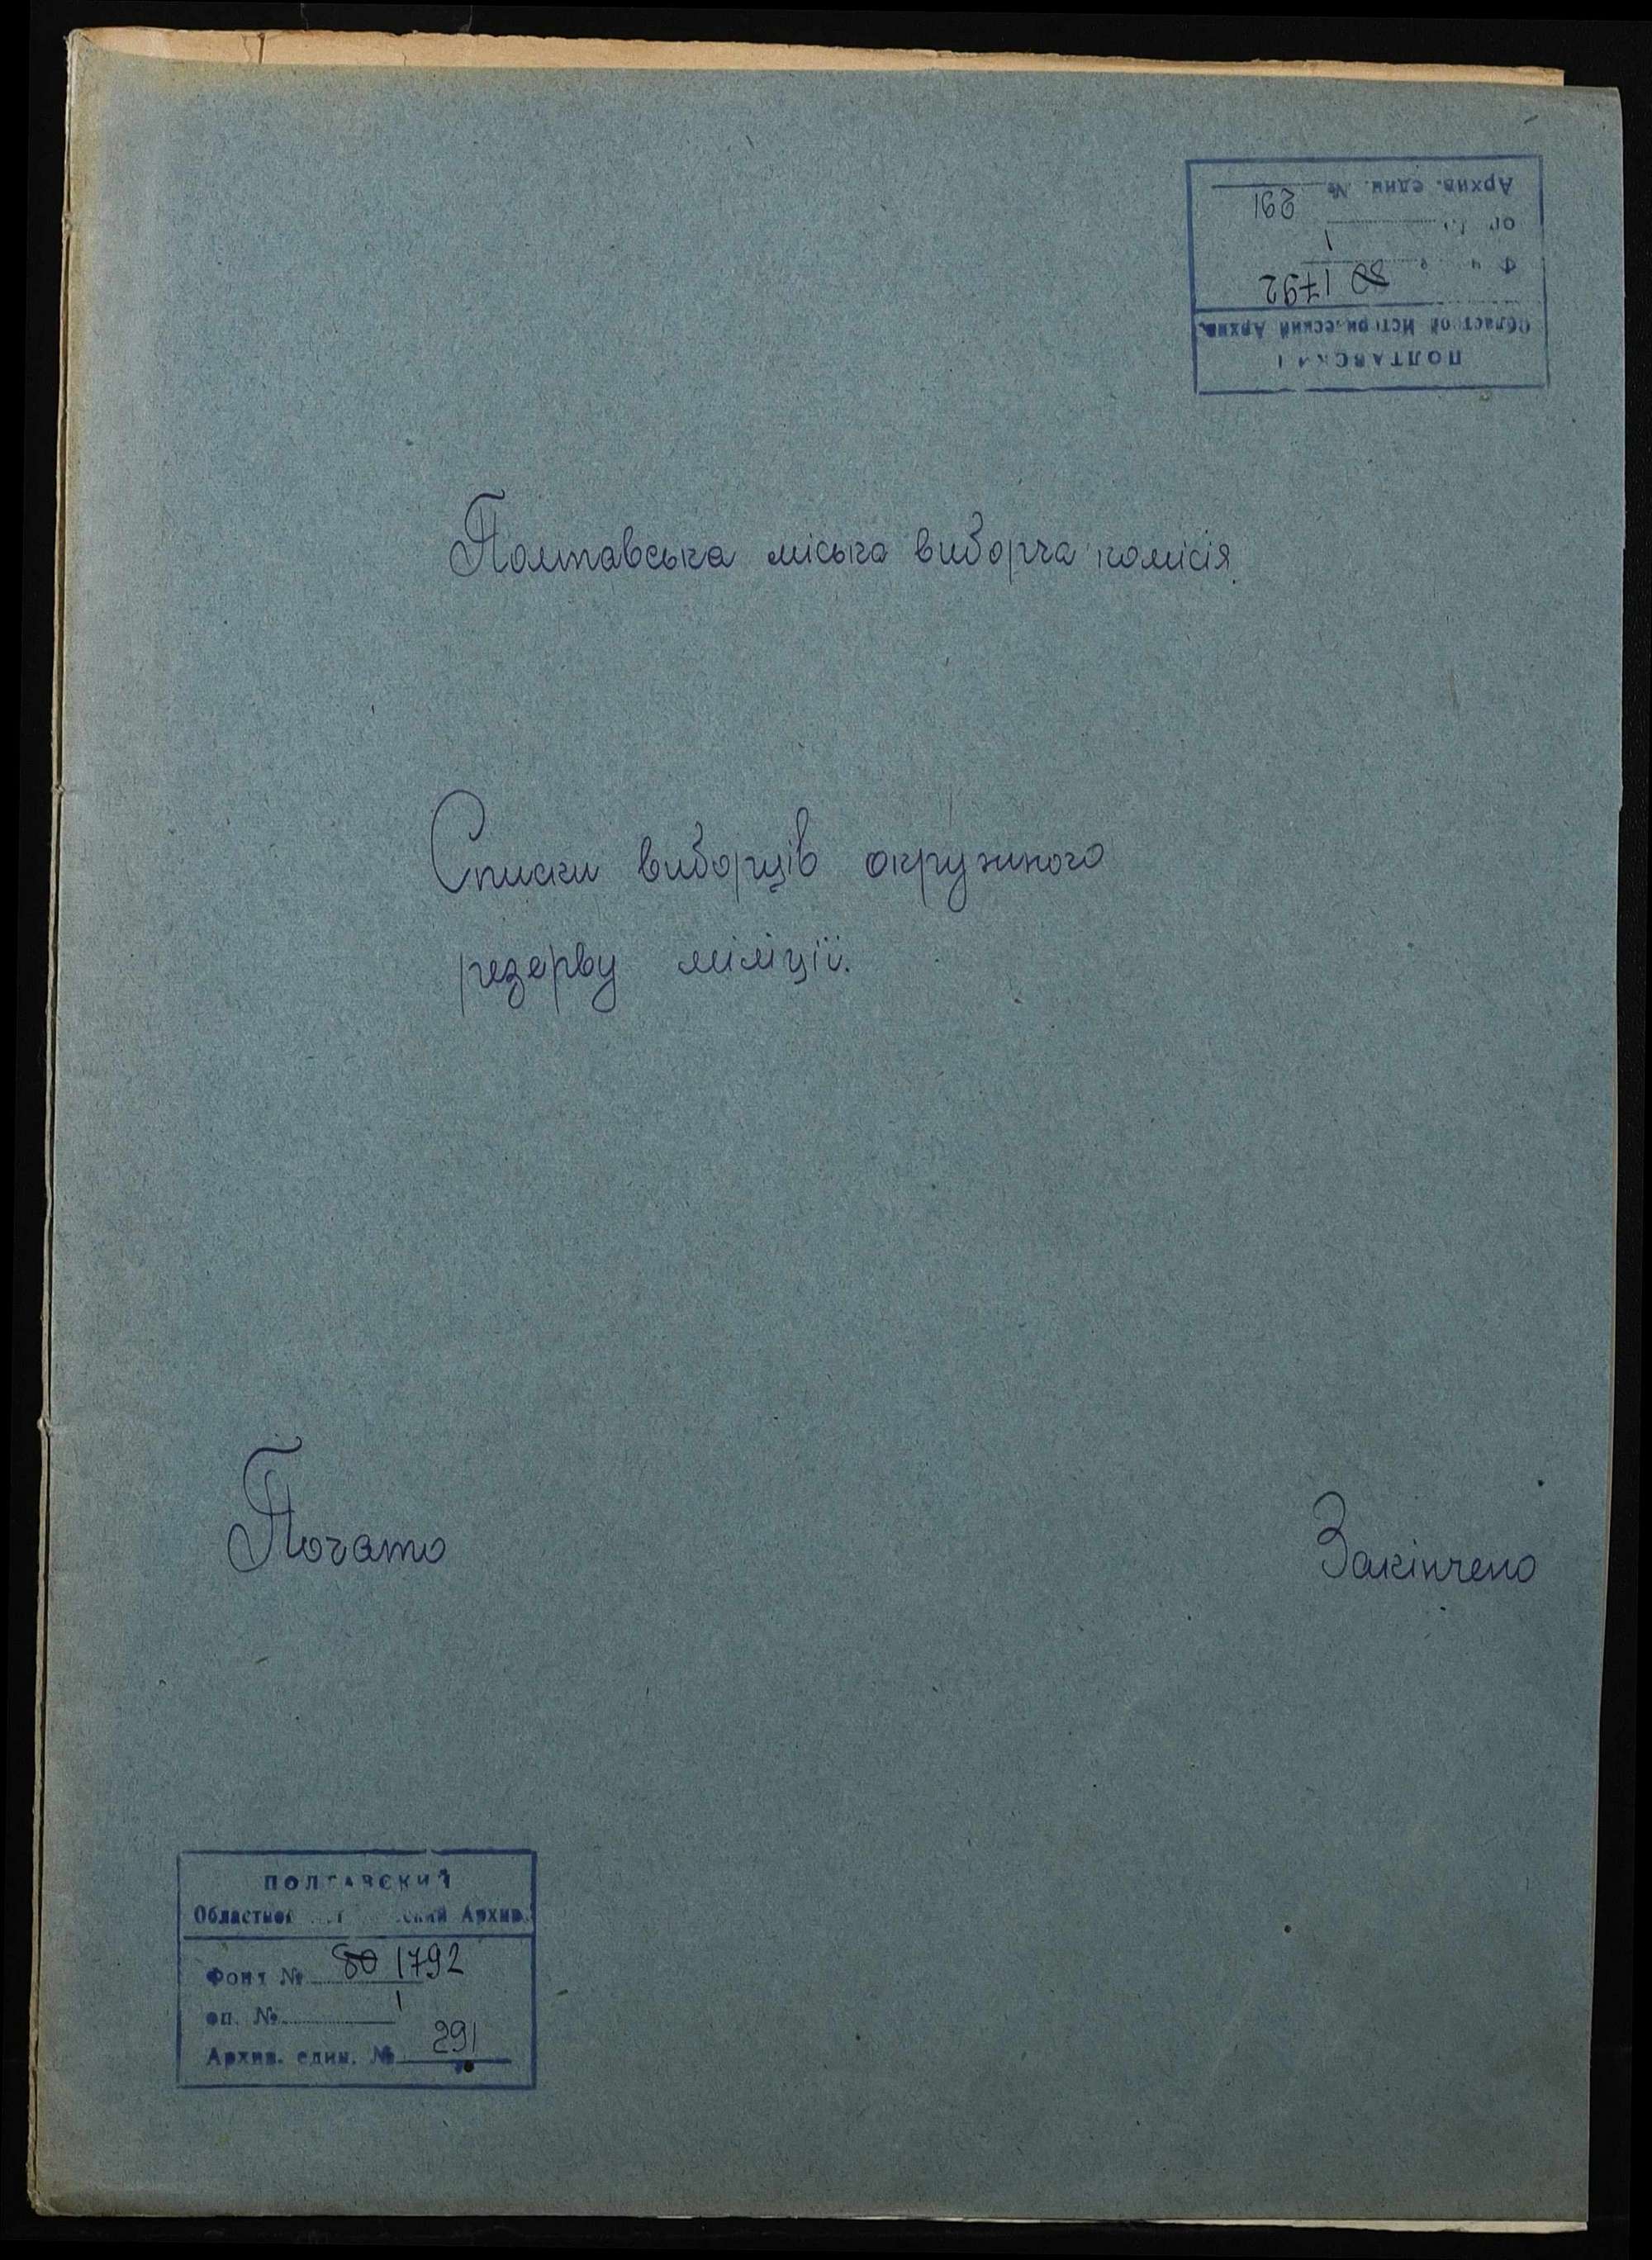 ПОЛТАВСКИ
Областной Исторический Архив
80 1792
1
Архив. един. № 291
Полтавська міська виборча комісія.
Списки виборців окружного
резерву міліції.
Почато
Закінчено
ПОЛТАВСКИЙ
Областной Архив
Фонд № 80 1792
оп. № 1
Архив. един. № 291